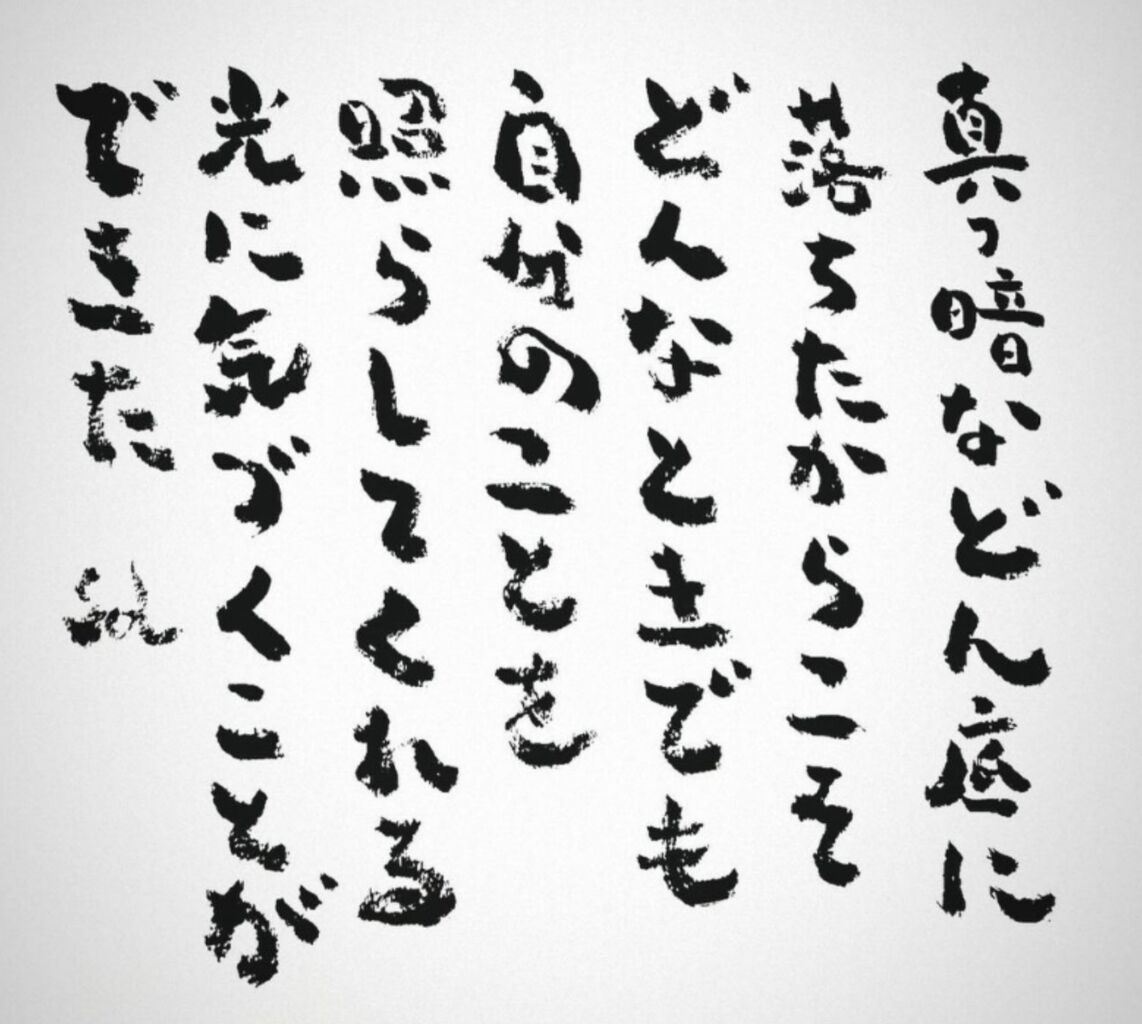 真っ暗などん底に
落ちたからこそ
どんなときでも
自分のことを
照らしてくれる
光に気づくことが
できた